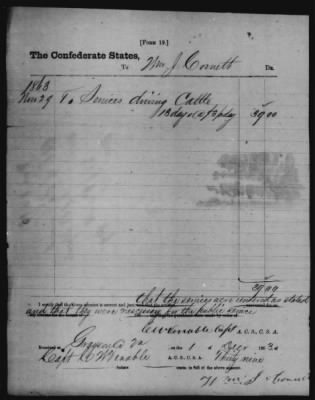 [FORM 19.]
The Confederate States,
To Wm. J. Cornett Dr.
1863
Nov 29 To Services driving Cattle
13 days @ $3 p day 39 00
39 00
I certify that the above account is correct and just; that the services were rendered as stated
and that they were necessary for the public service
C W Venable Capt A. C. S., C. S. A.
Received at Va on the 1 of Decr 1863, of
Capt C W Venable A. C. S., C. S. A. Thirty nine
dollars cents, in full of the above account.
Wm J Cornett